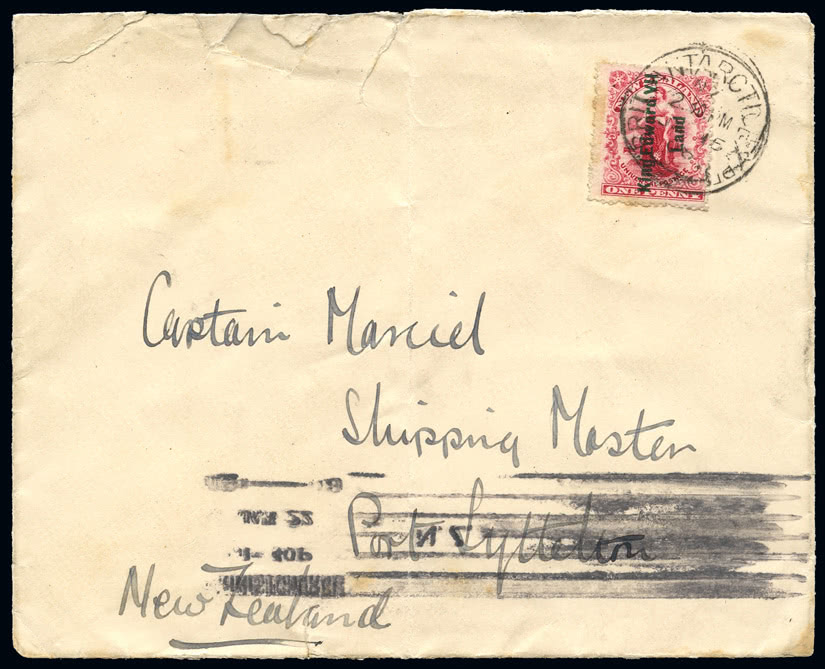 King Edward VII
Land
ONE PENNY
Captain Marciel
Shipping Master
Port Lyttelton
N Z
New Zealand